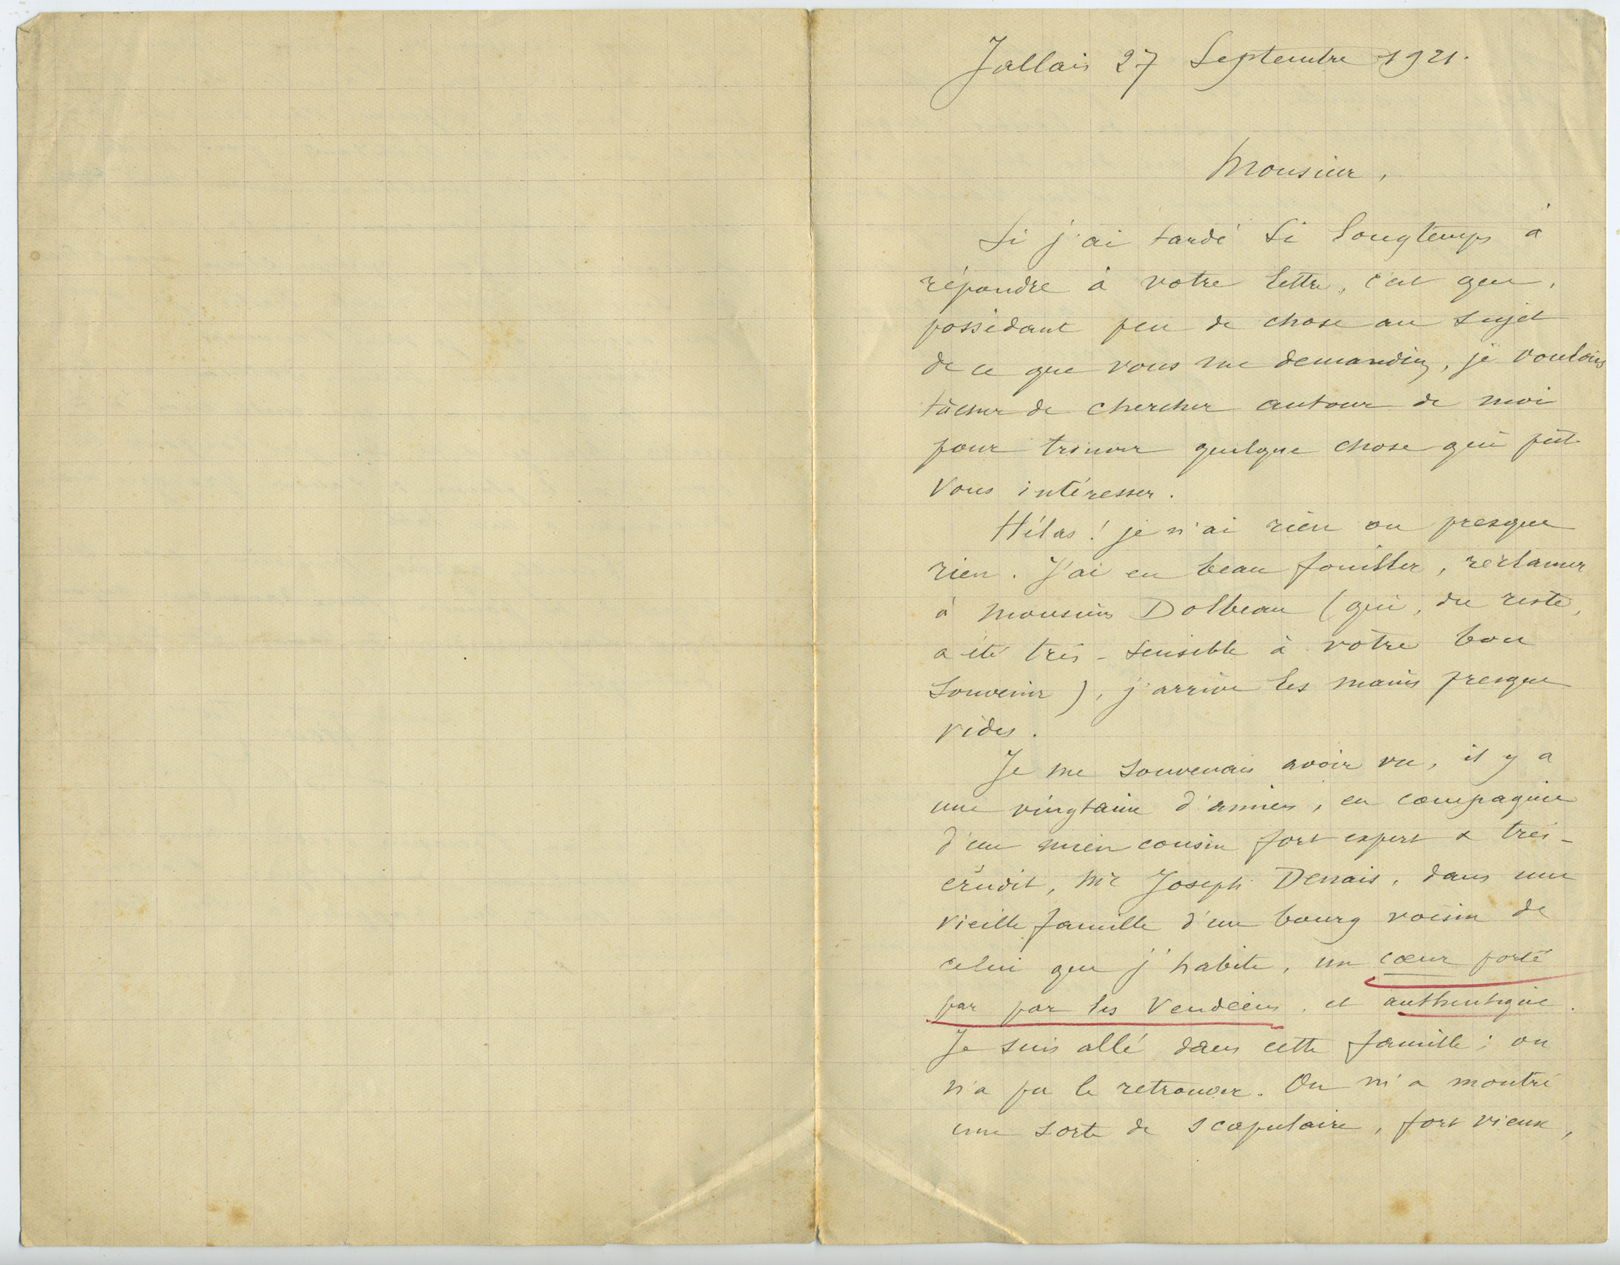 Jallais 27 Septembre 1921.
Monsieur,
Si j'ai tardé si longtemps à
répondre à votre lettre, c'est que,
possédant peu de chose au sujet
de ce que vous me demandiez, je voulais
tâcher de chercher autour de moi
pour trouver quelque chose qui pût
vous intéresser.
Hélas ! je n'ai rien ou presque
rien. J'ai eu beau fouiller, réclamer
à Monsieur Dolbeau (qui, du reste,
a été très-sensible à votre bon
souvenir), j'arrive les mains presque
vides.
Je me souvenais avoir vu, il y a
une vingtaine d'années, en compagnie
d'un mien cousin fort expert & très-
érudit, Mr Joseph Denais, dans une
vieille famille d'un bourg voisin de
celui que j'habite, un cœur porté
par par les Vendéens, et authentique.
Je suis allé dans cette famille ; on
n'a pu le retrouver. On m'a montré
une sorte de scapulaire, fort vieux,